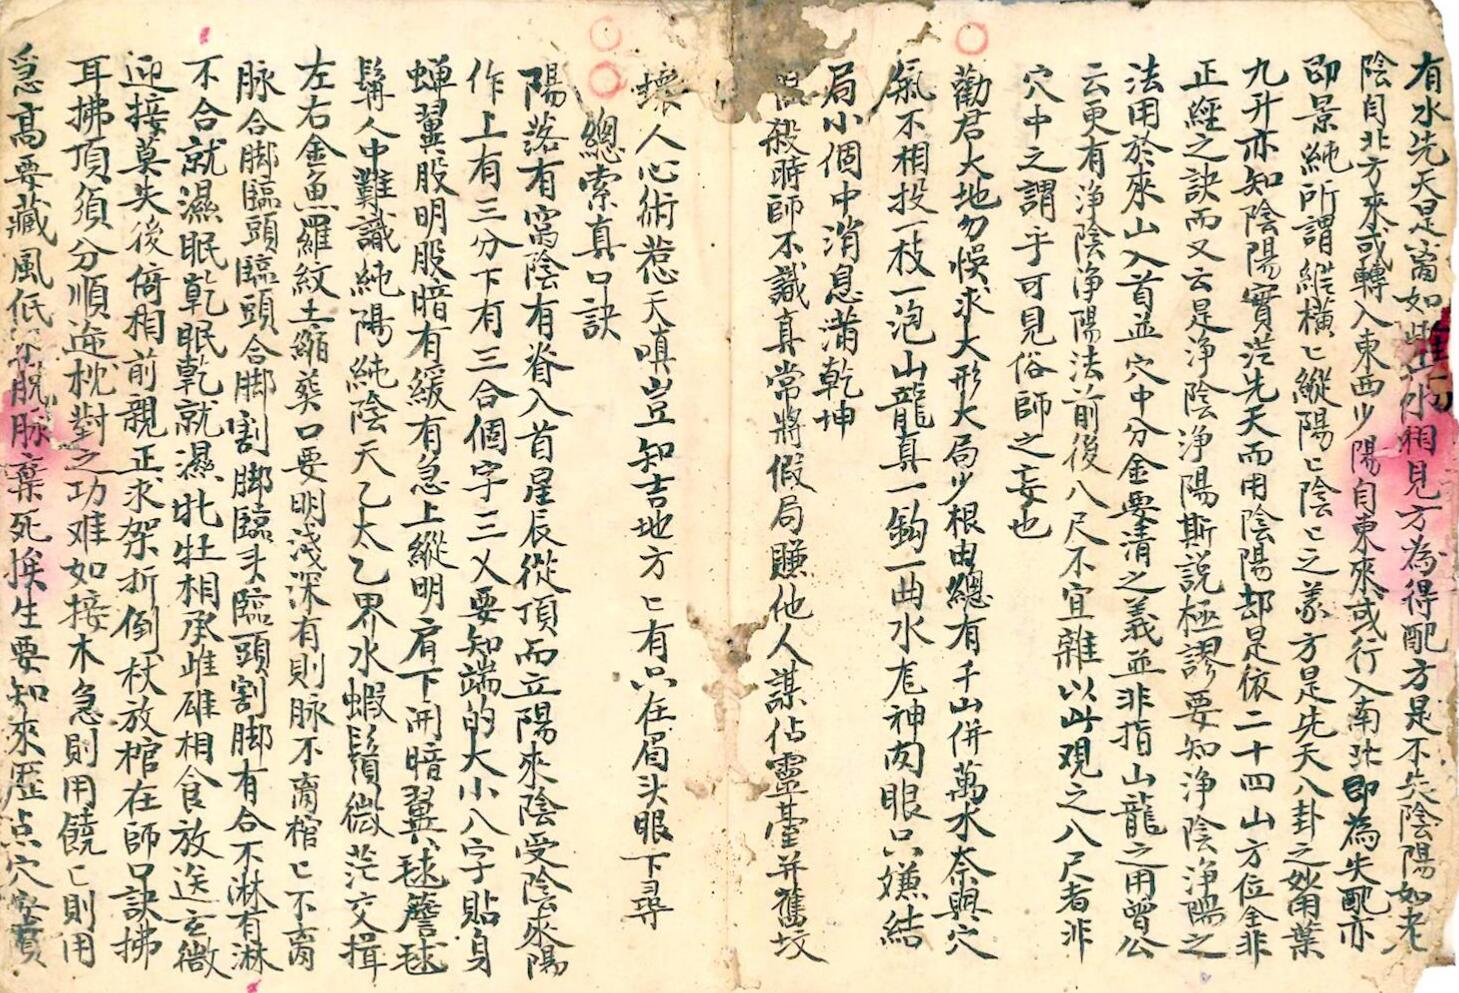 有水先天是离如此水相見方為得配方是不失陰陽如老
陰自北方來或轉入東西少陽自東來或行入南北即為失配亦
即景純所謂縱橫匕縱陽匕陰匕之義方是先天八卦之妙甯葉
九升亦知陰陽實從先天而用陰陽却是依二十四山方位全非
正經之訣而又云是净陰净陽斯説極謬要知净陰净陽之
法用於來山入首並穴中分金要清之義並非指山龍之用曾公
云更有净陰净陽法前後八尺不宜雜以此观之八尺者非
穴中之謂乎可見俗師之妄也
勸君大地勿悞求大形大局少根由總有千山併萬水奈與穴
氣不相投一枝一泡山龍真一鈎一曲水尨神肉眼只嫌結
局小個中消息满乾坤
殺時師不識真常將假局賺他人謀佔靈臺并舊坟
壞人心術惹天嗔豈知吉地方匕有只在眉头眼下尋
總索真口訣
陽落有窩陰有脊入首星辰從頂而立陽來陰受陰來陽
作上有三分下有三合個字三义要知端的大小八字貼身
蟬翼股明股暗有緩有急上縱明肩下開暗翼毬簷毬
髯人中難識純陽純陰天乙太乙界水蝦鬚微茫交揖
左右金魚羅紋土縮葬口要明浅深有則脉不离棺匕不离
脉合脚臨頭臨頭合脚割脚臨头臨頭割脚有合不淋有淋
不合就濕眠乾眠乾就濕牝牡相承雌雄相食放送玄微
迎接莫失後倚相前親正求架折倒杖放棺在師口訣拂
耳拂頂須分順逆枕對之功难如接木急則用饒匕則用
急高要藏風低 脱脉棄死挨生要知來歷点穴 實